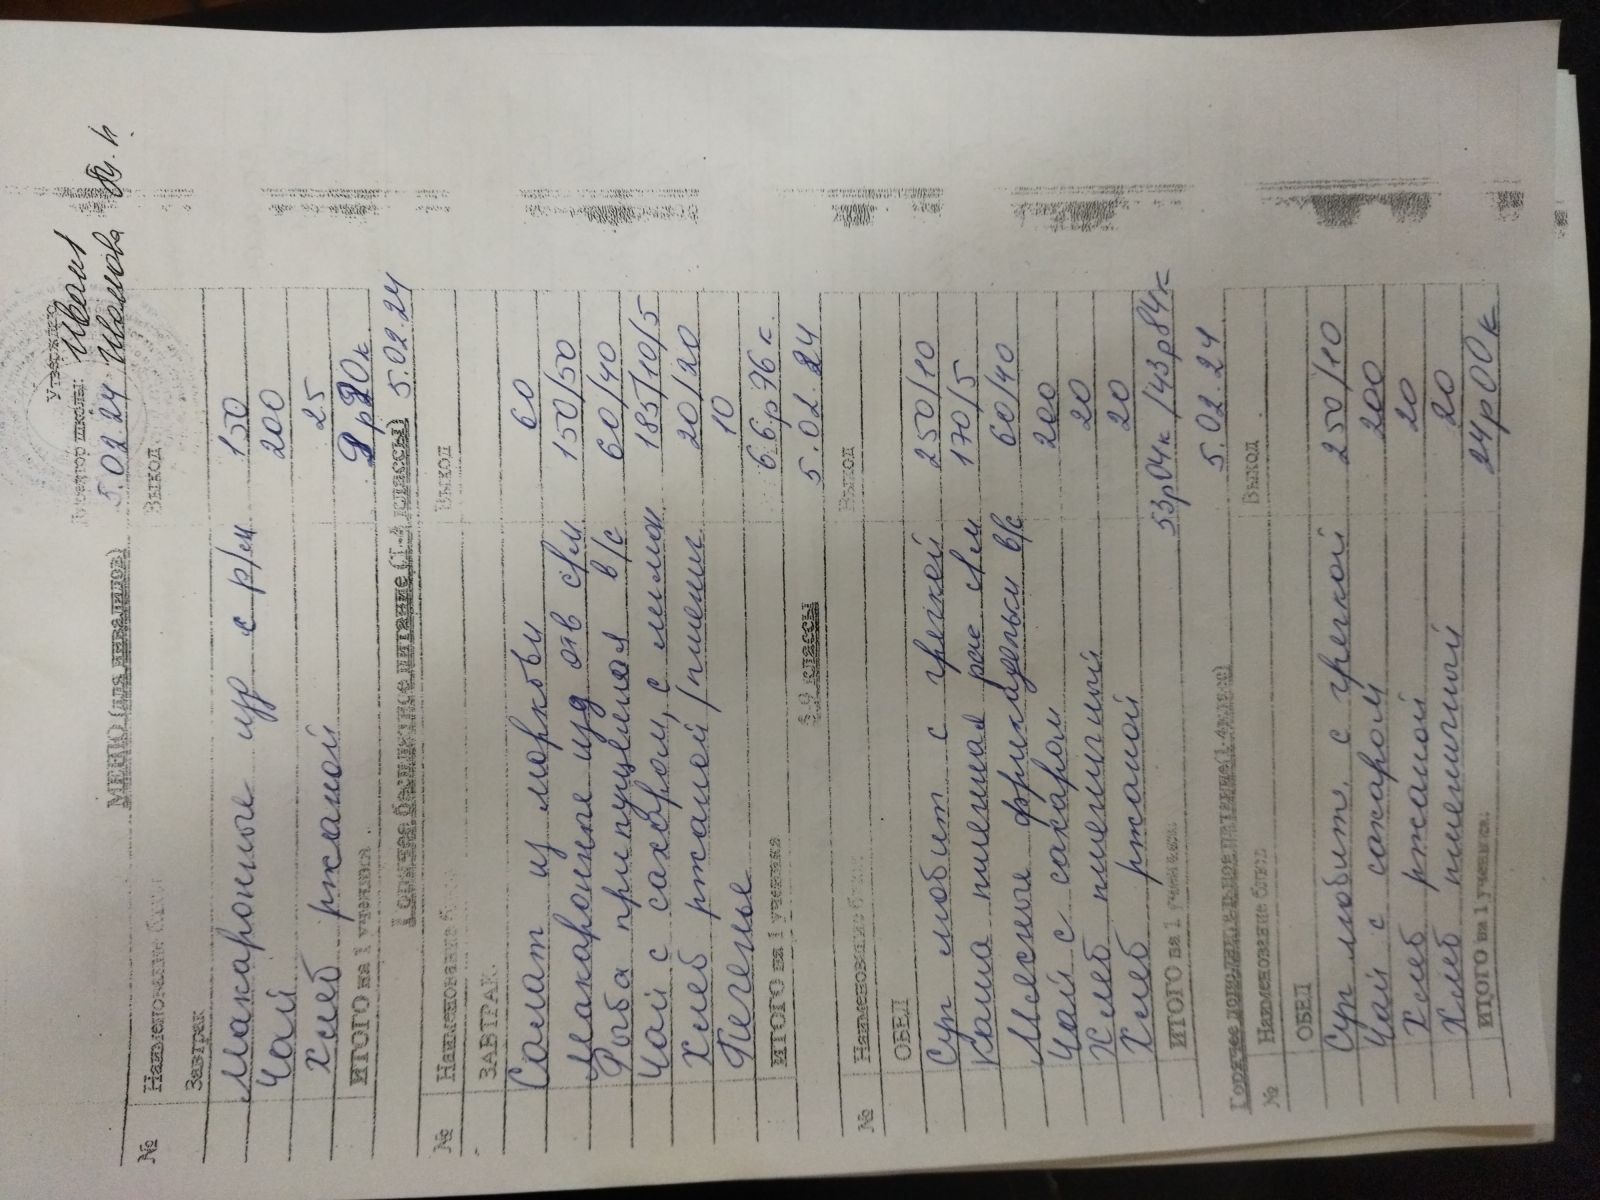 Утверждаю
Директор школы:
5.02.24
МЕНЮ (для инвалидов)
№ Наименование блюд Выход
Завтрак
Макаронные изд с р/м 150
Чай 200
Хлеб ржаной 25
ИТОГО на 1 ученика 20к
Горячее бесплатное питание (1-4 классы) 5.02.24
№ Наименование блюд Выход
ЗАВТРАК.
Салат из моркови 60
Макаронные изд отв с/м 150/50
Рыба припущенная в/с 60/40
Чай с сахаром, с лимон 185/10/5
Хлеб ржаной/пшенич 20/20
Печенье 10
ИТОГО на 1 ученика 66р76к.
5-9 классы 5.02.24
№ Наименование блюд Выход
ОБЕД
Суп любит с гречкой 250/10
Каша пшенная рас с/м 170/5
Мясные фрикадельки в/с 60/40
Чай с сахаром 200
Хлеб пшеничный 20
Хлеб ржаной 20
ИТОГО на 1 ученика: 53р04к/43р84к
Горячее питание (1-4 класс) 5.02.24
№ Наименование блюд Выход
ОБЕД
Суп любит. с гречкой 250/10
Чай с сахаром 200
Хлеб ржаной 20
Хлеб пшеничный 20
ИТОГО на 1 ученика: 24р00к